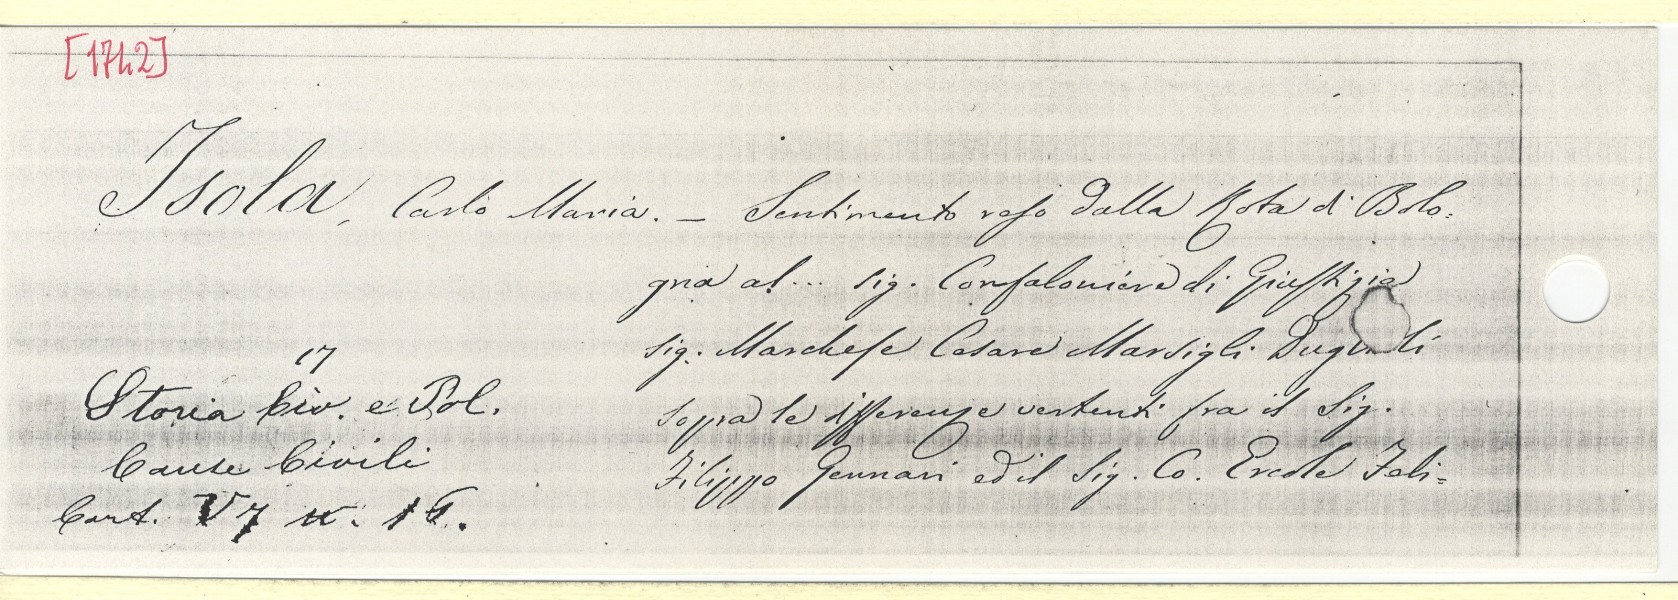 [1742]
Isola, Carlo Maria. — Sentimento reso dalla Rota di Bolo=
gna al ... sig. Confaloniere di Giustizia
sig. Marchese Cesare Marsigli Duglioli
sopra le differenze vertenti fra il Sig.
Filippo Gennari ed il Sig. Co. Ercole Feli=
17
Storia Civ. e Pol.
Cause Civili
Cart. V7 n. 16.